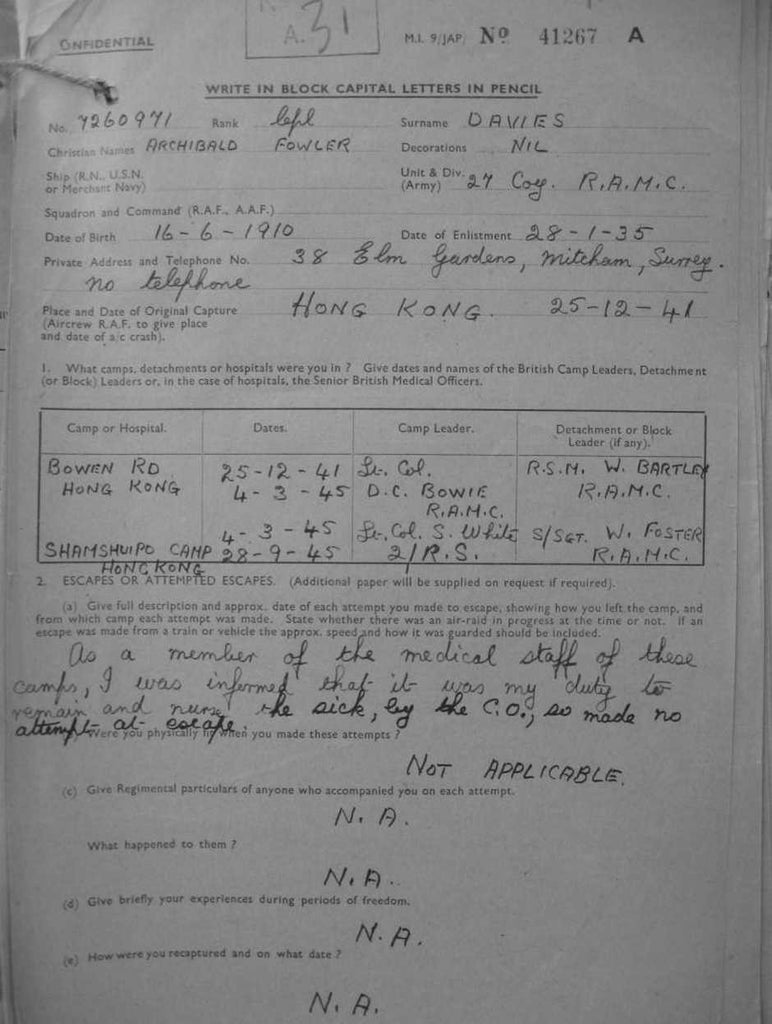 CONFIDENTIAL
A. 31
M.I. 9/JAP/ Nº 41267 A
WRITE IN BLOCK CAPITAL LETTERS IN PENCIL
No. 7260971 Rank Cpl Surname DAVIES
Christian Names ARCHIBALD FOWLER Decorations NIL
Ship (R.N., U.S.N. or Merchant Navy)
Unit & Div. (Army) 27 Coy. R.A.M.C.
Squadron and Command (R.A.F., A.A.F.)
Date of Birth 16-6-1910 Date of Enlistment 28-1-35
Private Address and Telephone No. 38 Elm Gardens, Mitcham, Surrey.
no telephone
Place and Date of Original Capture HONG KONG. 25-12-41
(Aircrew R.A.F. to give place
and date of a/c crash).
1. What camps, detachments or hospitals were you in ? Give dates and names of the British Camp Leaders, Detachment
(or Block) Leaders or, in the case of hospitals, the Senior British Medical Officers.
Camp or Hospital. Dates. Camp Leader. Detachment or Block
Leader (if any).
BOWEN RD 25-12-41 Lt. Col. R.S.M. W. BARTLEY
HONG KONG 4-3-45 D.C. BOWIE R.A.M.C.
R.A.M.C.
4-3-45 Lt. Col. S. White S/SGT. W. FOSTER
SHAMSHUIPO CAMP 28-9-45 2/R.S. R.A.M.C.
HONG KONG
2. ESCAPES OR ATTEMPTED ESCAPES. (Additional paper will be supplied on request if required).
(a) Give full description and approx. date of each attempt you made to escape, showing how you left the camp, and
from which camp each attempt was made. State whether there was an air-raid in progress at the time or not. If an
escape was made from a train or vehicle the approx. speed and how it was guarded should be included.
As a member of the medical staff of these
camps, I was informed that it was my duty to
remain and nurse the sick, by the C.O., so made no
attempt at escape.
Were you physically fit when you made these attempts ?
NOT APPLICABLE.
(c) Give Regimental particulars of anyone who accompanied you on each attempt.
N.A.
What happened to them ?
N.A.
(d) Give briefly your experiences during periods of freedom.
N.A.
(e) How were you recaptured and on what date ?
N.A.